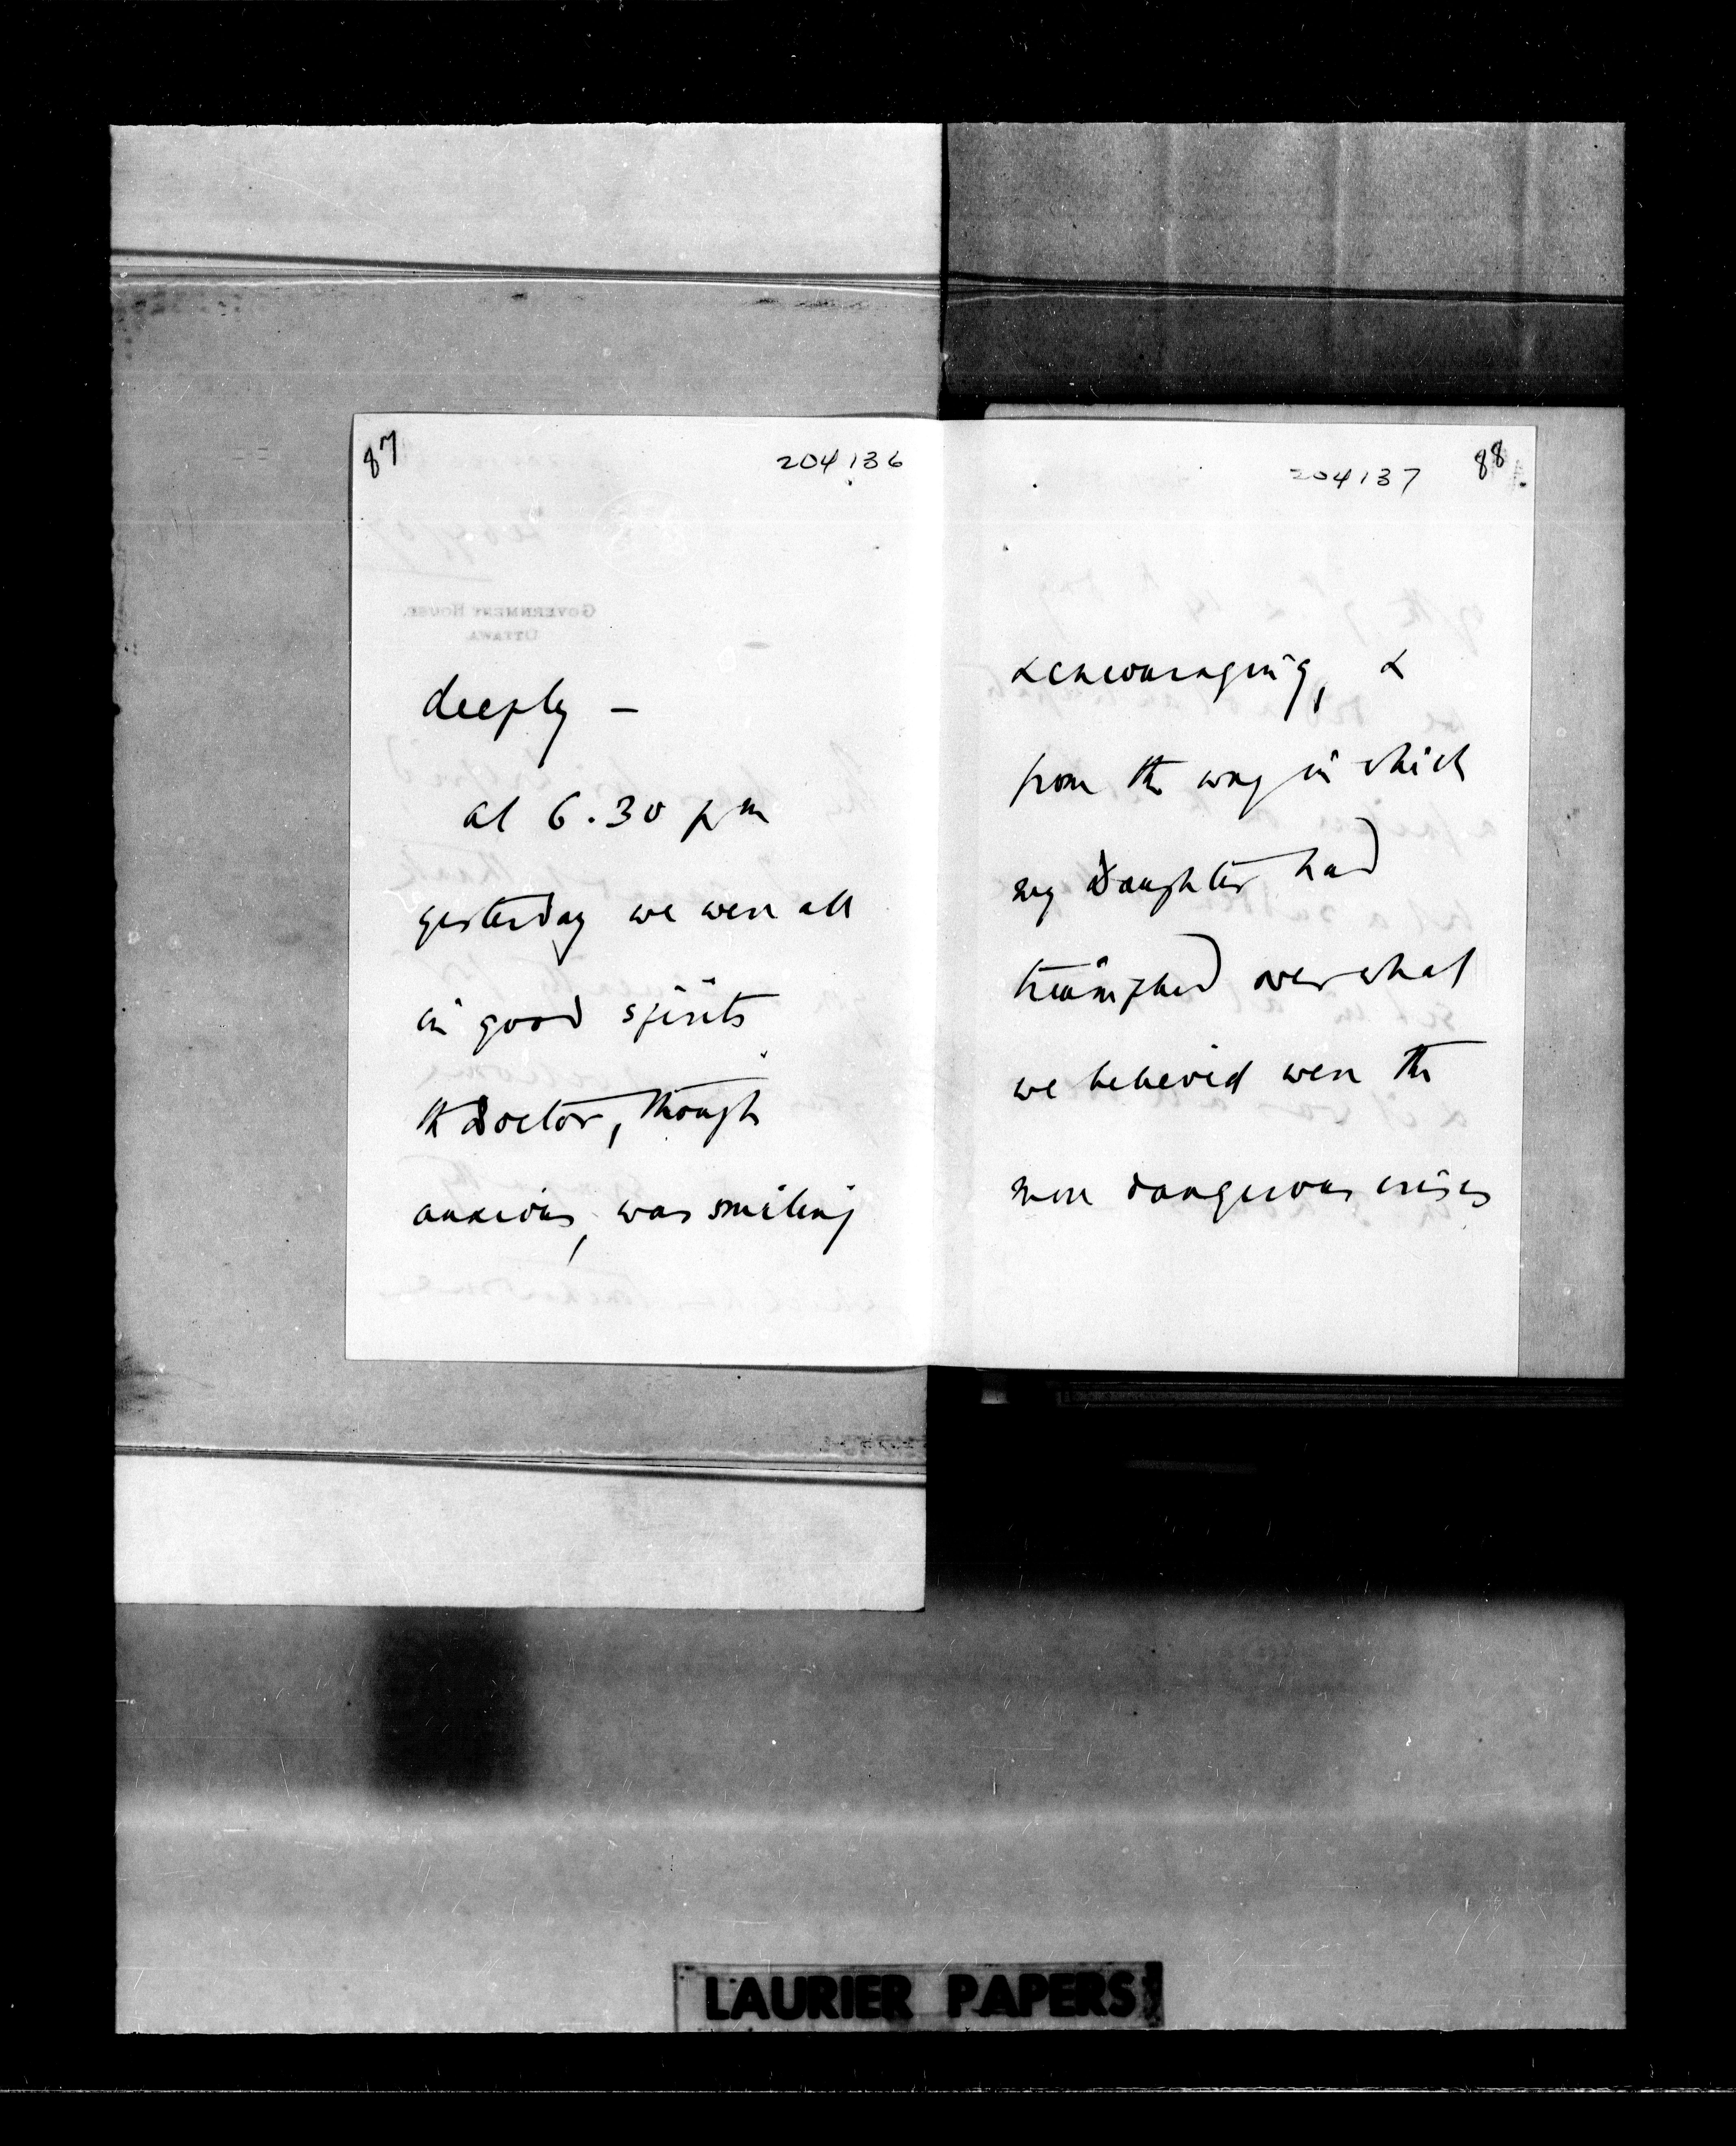 87
204136
deeply —
at 6.30 pm
yesterday we were all
in good spirits
the Doctor, though
anxious, was smiling
204137
88
& encouraging, &
from the way in which
my Daughter had
triumphed over what
we believed were the
more dangerous crises
GOVERNMENT HOUSE.
OTTAWA
LAURIER PAPERS